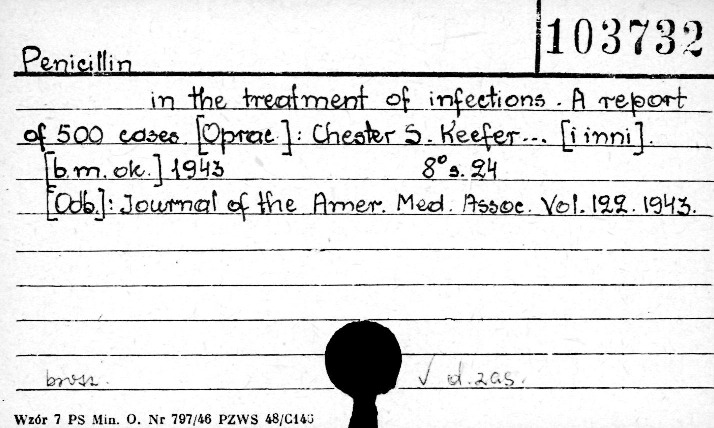 103732
Penicillin
in the treatment of infections. A report
of 500 cases. [Oprac.]: Chester S. Keefer... [i inni].
[b.m.ok.] 1943 8° s. 24
[Odb.]: Journal of the Amer. Med. Assoc. Vol. 122. 1943.
brosz. √ d. zas.
Wzór 7 PS Min. O. Nr 797/46 PZWS 48/C146